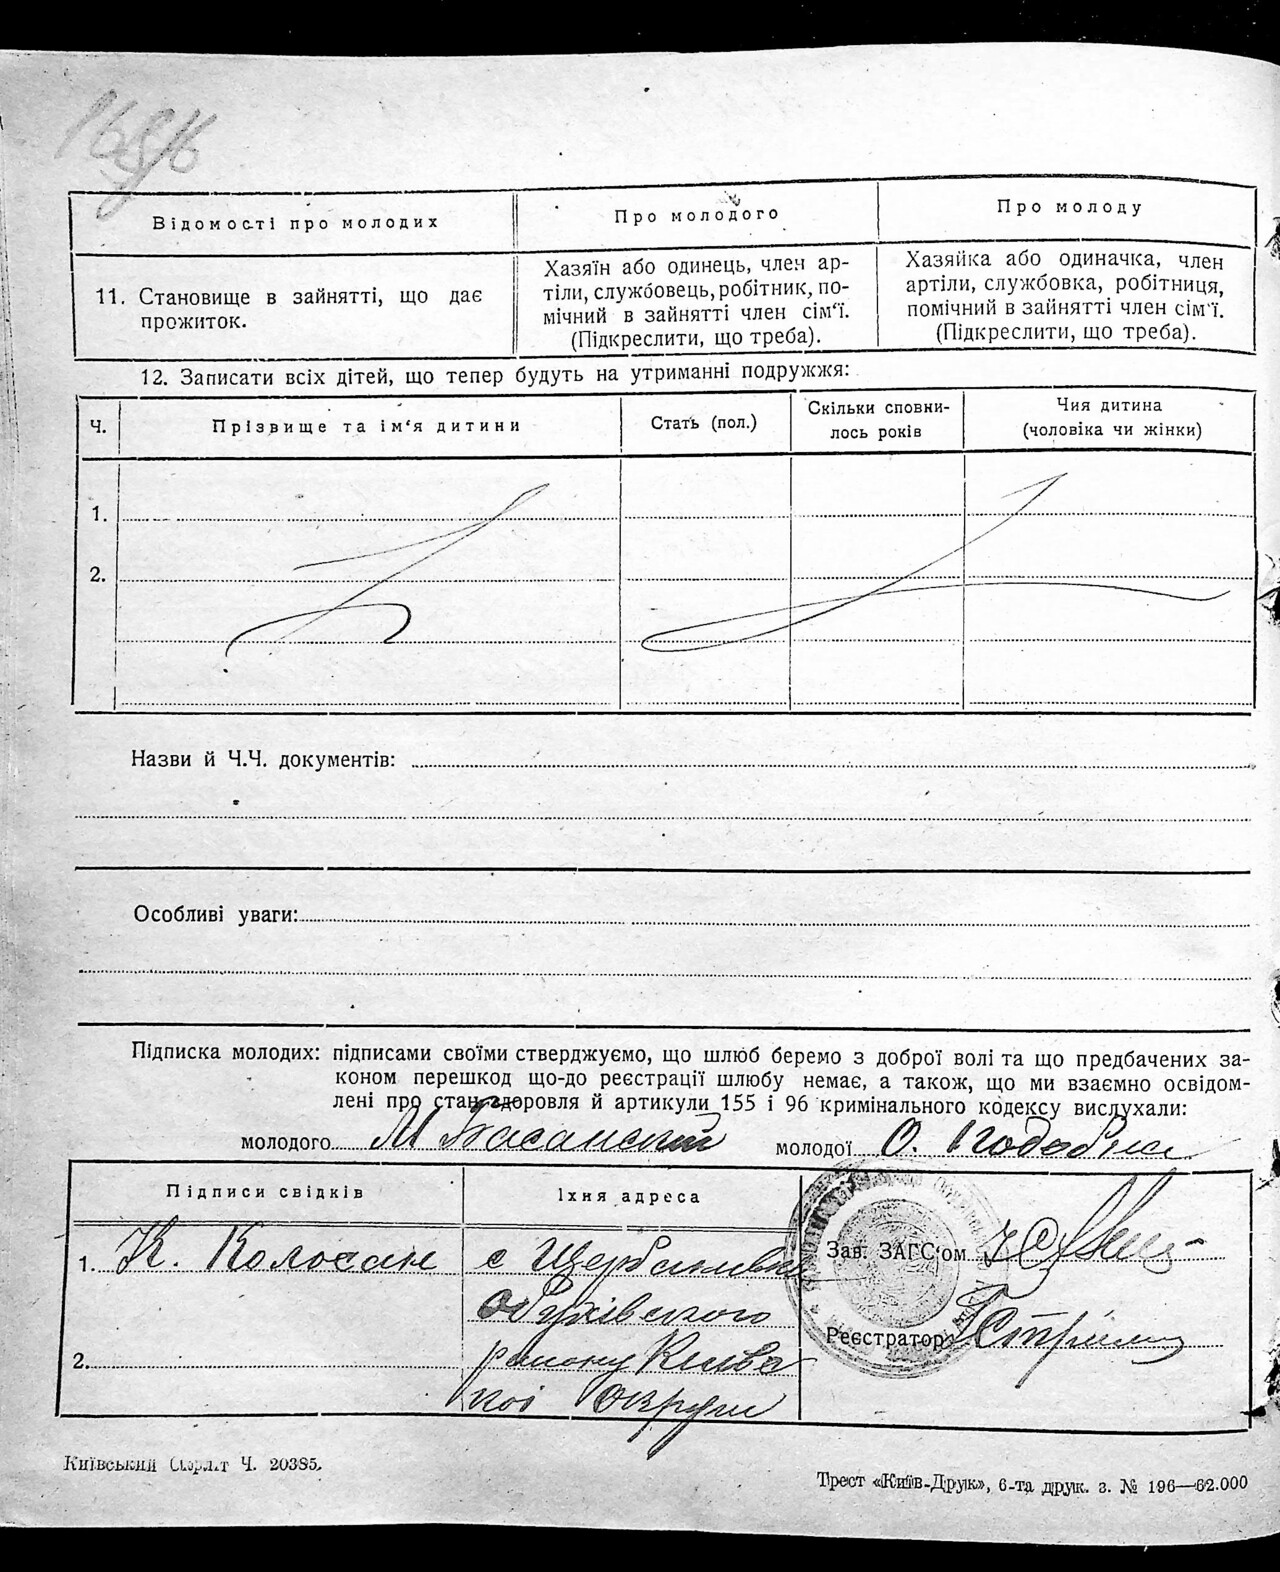 Відомості про молодих
Про молодого
Про молоду
11. Становище в зайнятті, що дає
прожиток.
Хазяїн або одинець, член ар-
тіли, службовець, робітник, по-
мічний в зайнятті член сім'ї.
(Підкреслити, що треба).
Хазяйка або одиначка, член
артіли, службовка, робітниця,
помічний в зайнятті член сім'ї.
(Підкреслити, що треба).
12. Записати всіх дітей, що тепер будуть на утриманні подружжя:
Ч.
Прізвище та ім'я дитини
Стать (пол.)
Скільки сповни-
лось років
Чия дитина
(чоловіка чи жінки)
1.
2.
Назви й Ч.Ч. документів:
Особливі уваги:
Підписка молодих: підписами своїми стверджуємо, що шлюб беремо з доброї волі та що предбачених за-
коном перешкод що-до реєстрації шлюбу немає, а також, що ми взаємно освідом-
лені про стан здоровля й артикули 155 і 96 кримінального кодексу вислухали:
молодого М Басанский молодої О.
Підписи свідків
Їхня адреса
1. К. Колосан
с Щербанивка
Обухівського
району Київс
кої округи
2.
Зав. ЗАГС'ом
Реєстратор
Київський Окрліт Ч. 20385.
Трест «Київ-Друк», 6-та друк. з. № 196—62.000